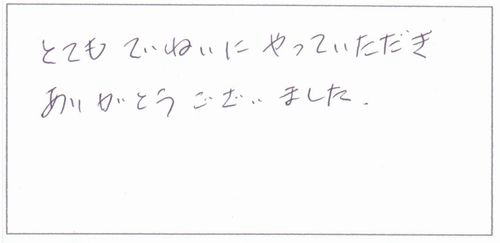 とても ていねいに やっていただき
ありがとうございました.